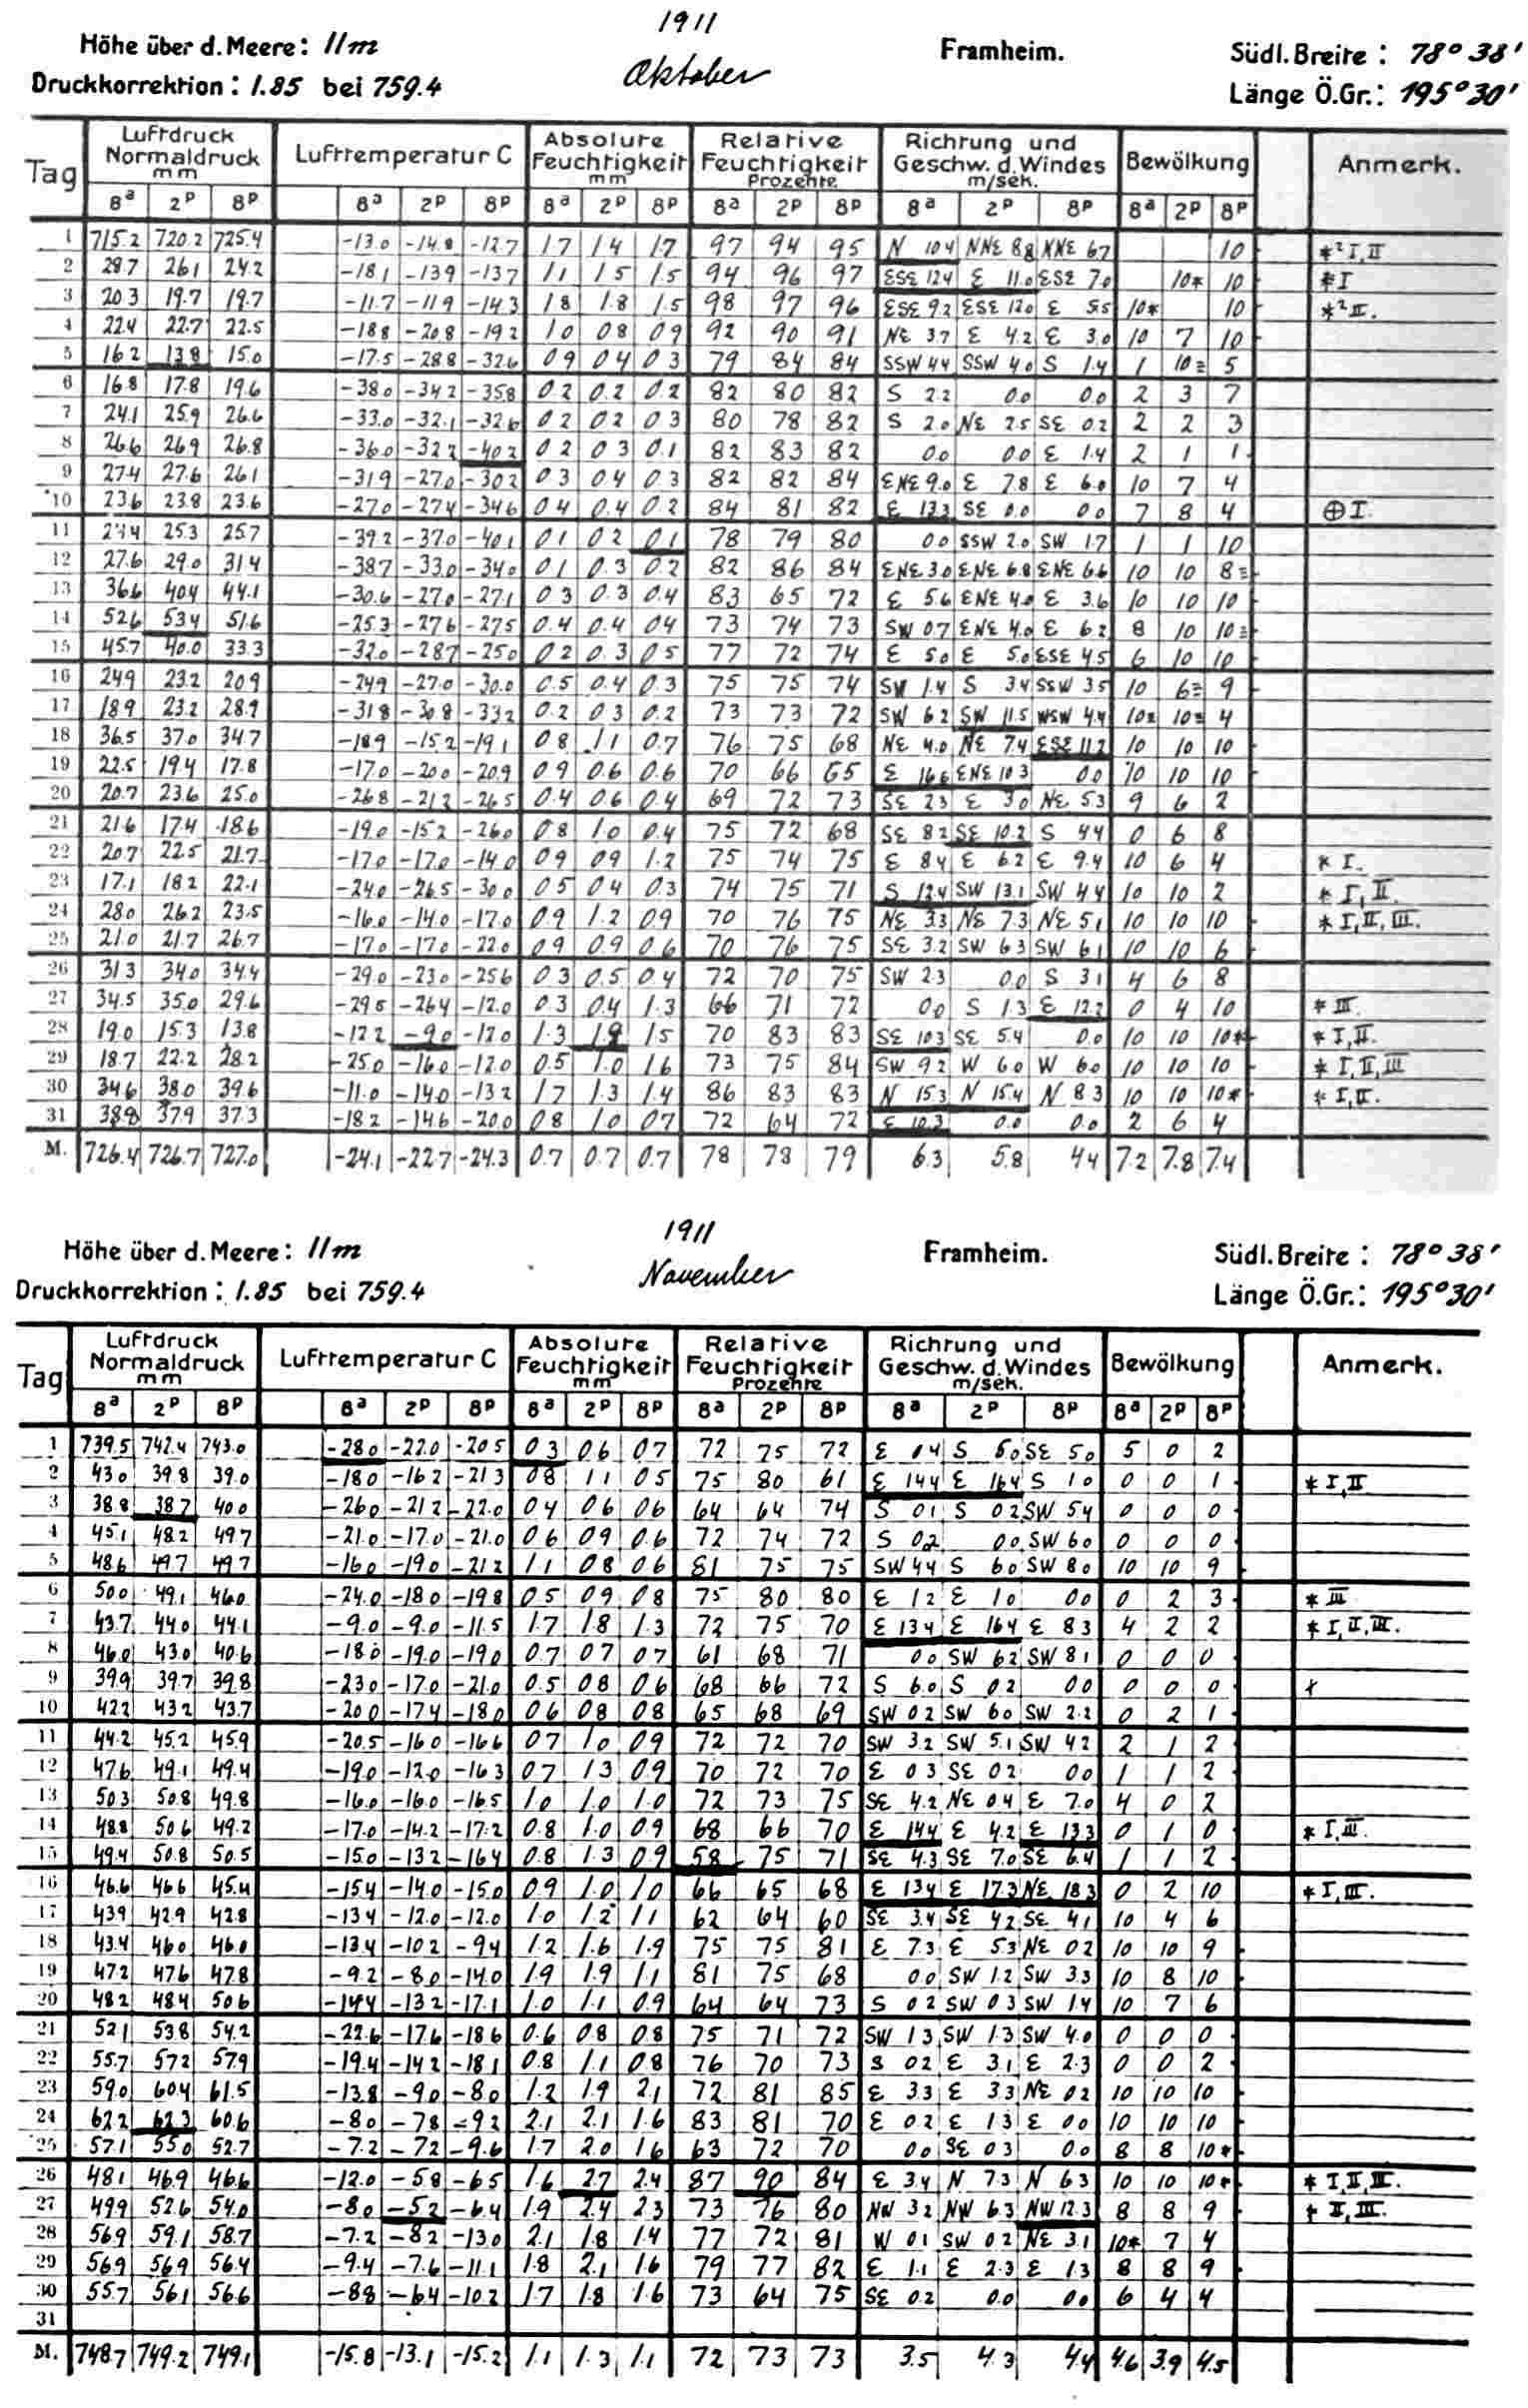 1911
Höhe über d. Meere: 11m Oktober Framheim. Südl. Breite: 78° 38'
Druckkorrektion: 1.85 bei 759.4 Länge Ö.Gr.: 195° 30'
Tag Luftdruck Normaldruck mm Lufttemperatur C Absolute Feuchtigkeit mm Relative Feuchtigkeit Prozente Richtung und Geschw. d. Windes m/sek. Bewölkung Anmerk.
8a 2p 8p 8a 2p 8p 8a 2p 8p 8a 2p 8p 8a 2p 8p 8a 2p 8p
1 715.2 720.2 725.4 -13.0 -14.8 -12.7 1.7 1.4 1.7 97 94 95 N 10.4 NNE 8.8 NNE 6.7 10 *² I, II
2 28.7 26.1 24.2 -18.1 -13.9 -13.7 1.1 1.5 1.5 94 96 97 ESE 12.4 E 11.0 ESE 7.0 10* 10 * I
3 20.3 19.7 19.7 -11.7 -11.9 -14.3 1.8 1.8 1.5 98 97 96 ESE 9.2 ESE 12.0 E 5.5 10* 10 *² II.
4 22.4 22.7 22.5 -18.8 -20.8 -19.2 1.0 0.8 0.9 92 90 91 NE 3.7 E 4.2 E 3.0 10 7 10
5 16.2 13.8 15.0 -17.5 -28.8 -32.6 0.9 0.4 0.3 79 84 84 SSW 4.4 SSW 4.0 S 1.4 1 10≡ 5
6 16.8 17.8 19.6 -38.0 -34.2 -35.8 0.2 0.2 0.2 82 80 82 S 2.2 0.0 0.0 2 3 7
7 24.1 25.9 26.6 -33.0 -32.1 -32.6 0.2 0.2 0.3 80 78 82 S 2.0 NE 2.5 SE 0.2 2 2 3
8 26.6 26.9 26.8 -36.0 -32.2 -40.2 0.2 0.3 0.1 82 83 82 0.0 0.0 E 1.4 2 1 1
9 27.4 27.6 26.1 -31.9 -27.0 -30.2 0.3 0.4 0.3 82 82 84 ENE 9.0 E 7.8 E 6.0 10 7 4
10 23.6 23.8 23.6 -27.0 -27.4 -34.6 0.4 0.4 0.2 84 81 82 E 13.3 SE 0.0 0.0 7 8 4 ⊕ I.
11 24.4 25.3 25.7 -39.2 -37.0 -40.1 0.1 0.2 0.1 78 79 80 0.0 SSW 2.0 SW 1.7 1 1 10
12 27.6 29.0 31.4 -38.7 -33.0 -34.0 0.1 0.3 0.2 82 86 84 ENE 3.0 ENE 6.8 ENE 6.6 10 10 8≡
13 36.6 40.4 44.1 -30.6 -27.0 -27.1 0.3 0.3 0.4 83 65 72 E 5.6 ENE 4.0 E 3.6 10 10 10
14 52.6 53.4 51.6 -25.3 -27.6 -27.5 0.4 0.4 0.4 73 74 73 SW 0.7 ENE 4.0 E 6.2 8 10 10≡
15 45.7 40.0 33.3 -32.0 -28.7 -25.0 0.2 0.3 0.5 77 72 74 E 5.0 E 5.0 ESE 4.5 6 10 10
16 24.9 23.2 20.9 -24.9 -27.0 -30.0 0.5 0.4 0.3 75 75 74 SW 1.4 S 3.4 SSW 3.5 10 6≡ 9
17 18.9 23.2 28.9 -31.8 -30.8 -33.2 0.2 0.3 0.2 73 73 72 SW 6.2 SW 11.5 WSW 4.4 10≡ 10≡ 4
18 36.5 37.0 34.7 -18.9 -15.2 -19.1 0.8 1.1 0.7 76 75 68 NE 4.0 NE 7.4 ESE 11.2 10 10 10
19 22.5 19.4 17.8 -17.0 -20.0 -20.9 0.9 0.6 0.6 70 66 65 E 16.6 ENE 10.3 0.0 10 10 10
20 20.7 23.6 25.0 -26.8 -21.2 -26.5 0.4 0.6 0.4 69 72 73 SE 2.3 E 3.0 NE 5.3 9 6 2
21 21.6 17.4 18.6 -19.0 -15.2 -26.0 0.8 1.0 0.4 75 72 68 SE 8.2 SE 10.2 S 4.4 0 6 8
22 20.7 22.5 21.7 -17.0 -17.0 -14.0 0.9 0.9 1.2 75 74 75 E 8.4 E 6.2 E 9.4 10 6 4 * I.
23 17.1 18.2 22.1 -24.0 -26.5 -30.0 0.5 0.4 0.3 74 75 71 S 12.4 SW 13.1 SW 4.4 10 10 2 * I, II.
24 28.0 26.2 23.5 -16.0 -14.0 -17.0 0.9 1.2 0.9 70 76 75 NE 3.3 NE 7.3 NE 5.1 10 10 10 * I, II, III.
25 21.0 21.7 26.7 -17.0 -17.0 -22.0 0.9 0.9 0.6 70 76 75 SE 3.2 SW 6.3 SW 6.1 10 10 6
26 31.3 34.0 34.4 -29.0 -23.0 -25.6 0.3 0.5 0.4 72 70 75 SW 2.3 0.0 S 3.1 4 6 8
27 34.5 35.0 29.6 -29.5 -26.4 -12.0 0.3 0.4 1.3 66 71 72 0.0 S 1.3 E 12.2 0 4 10 * III.
28 19.0 15.3 13.8 -12.2 -9.0 -12.0 1.3 1.9 1.5 70 83 83 SE 10.3 SE 5.4 0.0 10 10 10* * I, II.
29 18.7 22.2 28.2 -25.0 -16.0 -12.0 0.5 1.0 1.6 73 75 84 SW 9.2 W 6.0 W 6.0 10 10 10 * I, II, III
30 34.6 38.0 39.6 -11.0 -14.0 -13.2 1.7 1.3 1.4 86 83 83 N 15.3 N 15.4 N 8.3 10 10 10* * I, II.
31 38.8 37.9 37.3 -18.2 -14.6 -20.0 0.8 1.0 0.7 72 64 72 E 10.3 0.0 0.0 2 6 4
M. 726.4 726.7 727.0 -24.1 -22.7 -24.3 0.7 0.7 0.7 78 78 79 6.3 5.8 4.4 7.2 7.8 7.4
1911
Höhe über d. Meere: 11m November Framheim. Südl. Breite: 78° 38'
Druckkorrektion: 1.85 bei 759.4 Länge Ö.Gr.: 195° 30'
Tag Luftdruck Normaldruck mm Lufttemperatur C Absolute Feuchtigkeit mm Relative Feuchtigkeit Prozente Richtung und Geschw. d. Windes m/sek. Bewölkung Anmerk.
8a 2p 8p 8a 2p 8p 8a 2p 8p 8a 2p 8p 8a 2p 8p 8a 2p 8p
1 739.5 742.4 743.0 -28.0 -22.0 -20.5 0.3 0.6 0.7 72 75 72 E 0.4 S 5.0 SE 5.0 5 0 2
2 43.0 39.8 39.0 -18.0 -16.2 -21.3 0.8 1.1 0.5 75 80 61 E 14.4 E 16.4 S 1.0 0 0 1 * I, II
3 38.8 38.7 40.0 -26.0 -21.2 -22.0 0.4 0.6 0.6 64 64 74 S 0.1 S 0.2 SW 5.4 0 0 0
4 45.1 48.2 49.7 -21.0 -17.0 -21.0 0.6 0.9 0.6 72 74 72 S 0.2 0.0 SW 6.0 0 0 0
5 48.6 49.7 49.7 -16.0 -19.0 -21.2 1.1 0.8 0.6 81 75 75 SW 4.4 S 6.0 SW 8.0 10 10 9
6 50.0 49.1 46.0 -24.0 -18.0 -19.8 0.5 0.9 0.8 75 80 80 E 1.2 E 1.0 0.0 0 2 3 * III
7 43.7 44.0 44.1 -9.0 -9.0 -11.5 1.7 1.8 1.3 72 75 70 E 13.4 E 16.4 E 8.3 4 2 2 * I, II, III.
8 46.0 43.0 40.6 -18.0 -19.0 -19.0 0.7 0.7 0.7 61 68 71 0.0 SW 6.2 SW 8.1 0 0 0
9 39.9 39.7 39.8 -23.0 -17.0 -21.0 0.5 0.8 0.6 68 66 72 S 6.0 S 0.2 0.0 0 0 0
10 42.2 43.2 43.7 -20.0 -17.4 -18.0 0.6 0.8 0.8 65 68 69 SW 0.2 SW 6.0 SW 2.2 0 2 1
11 44.2 45.2 45.9 -20.5 -16.0 -16.6 0.7 1.0 0.9 72 72 70 SW 3.2 SW 5.1 SW 4.2 2 1 2
12 47.6 49.1 49.4 -19.0 -12.0 -16.3 0.7 1.3 0.9 70 72 70 E 0.3 SE 0.2 0.0 1 1 2
13 50.3 50.8 49.8 -16.0 -16.0 -16.5 1.0 1.0 1.0 72 73 75 SE 4.2 NE 0.4 E 7.0 4 0 2
14 48.8 50.6 49.2 -17.0 -14.2 -17.2 0.8 1.0 0.9 68 66 70 E 14.4 E 4.2 E 13.3 0 1 0 * I, III.
15 49.4 50.8 50.5 -15.0 -13.2 -16.4 0.8 1.3 0.9 58 75 71 SE 4.3 SE 7.0 SE 6.4 1 1 2
16 46.6 46.6 45.4 -15.4 -14.0 -15.0 0.9 1.0 1.0 66 65 68 E 13.4 E 17.3 NE 18.3 0 2 10 * I, III.
17 43.9 42.9 42.8 -13.4 -12.0 -12.0 1.0 1.2 1.1 62 64 60 SE 3.4 SE 4.2 SE 4.1 10 4 6
18 43.4 46.0 46.0 -13.4 -10.2 -9.4 1.2 1.6 1.9 75 75 81 E 7.3 E 5.3 NE 0.2 10 10 9
19 47.2 47.6 47.8 -9.2 -8.0 -14.0 1.9 1.9 1.1 81 75 68 0.0 SW 1.2 SW 3.3 10 8 10
20 48.2 48.4 50.6 -14.4 -13.2 -17.1 1.0 1.1 0.9 64 64 73 S 0.2 SW 0.3 SW 1.4 10 7 6
21 52.1 53.8 54.2 -22.6 -17.6 -18.6 0.6 0.8 0.8 75 71 72 SW 1.3 SW 1.3 SW 4.0 0 0 0
22 55.7 57.2 57.9 -19.4 -14.2 -18.1 0.8 1.1 0.8 76 70 73 S 0.2 E 3.1 E 2.3 0 0 2
23 59.0 60.4 61.5 -13.8 -9.0 -8.0 1.2 1.9 2.1 72 81 85 E 3.3 E 3.3 NE 0.2 10 10 10
24 62.2 62.3 60.6 -8.0 -7.8 -9.2 2.1 2.1 1.6 83 81 70 E 0.2 E 1.3 E 0.0 10 10 10
25 57.1 55.0 52.7 -7.2 -7.2 -9.6 1.7 2.0 1.6 63 72 70 0.0 SE 0.3 0.0 8 8 10*
26 48.1 46.9 46.6 -12.0 -5.8 -6.5 1.6 2.7 2.4 87 90 84 E 3.4 N 7.3 N 6.3 10 10 10* * I, II, III.
27 49.9 52.6 54.0 -8.0 -5.2 -6.4 1.9 2.4 2.3 73 76 80 NW 3.2 NW 6.3 NW 12.3 8 8 9 * II, III.
28 56.9 59.1 58.7 -7.2 -8.2 -13.0 2.1 1.8 1.4 77 72 81 W 0.1 SW 0.2 NE 3.1 10* 7 4
29 56.9 56.9 56.4 -9.4 -7.6 -11.1 1.8 2.1 1.6 79 77 82 E 1.1 E 2.3 E 1.3 8 8 9
30 55.7 56.1 56.6 -8.8 -6.4 -10.2 1.7 1.8 1.6 73 64 75 SE 0.2 0.0 0.0 6 4 4
31
M. 748.7 749.2 749.1 -15.8 -13.1 -15.2 1.1 1.3 1.1 72 73 73 3.5 4.3 4.4 4.6 3.9 4.5